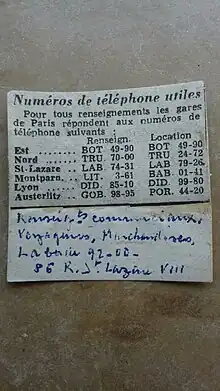 Numéros de téléphone utiles
Pour tous renseignements les gares
de Paris répondent aux numéros de
téléphone suivants :
Renseign. Location
Est BOT. 49-90 BOT. 49-90
Nord .. TRU. 70-00 TRU. 24-72
St-Lazare .. LAB. 74-31 LAB. 79-26
Montparn. LIT. 3-61 BAB. 01-41
Lyon .. DID. 85-10 DID. 99-80
Austerlitz .. GOB. 98-95 POR. 44-20
Renseig.ts commerciaux,
Voyageurs, Marchandises,
Laborde 92-00-
86 R. St Lazare VIII